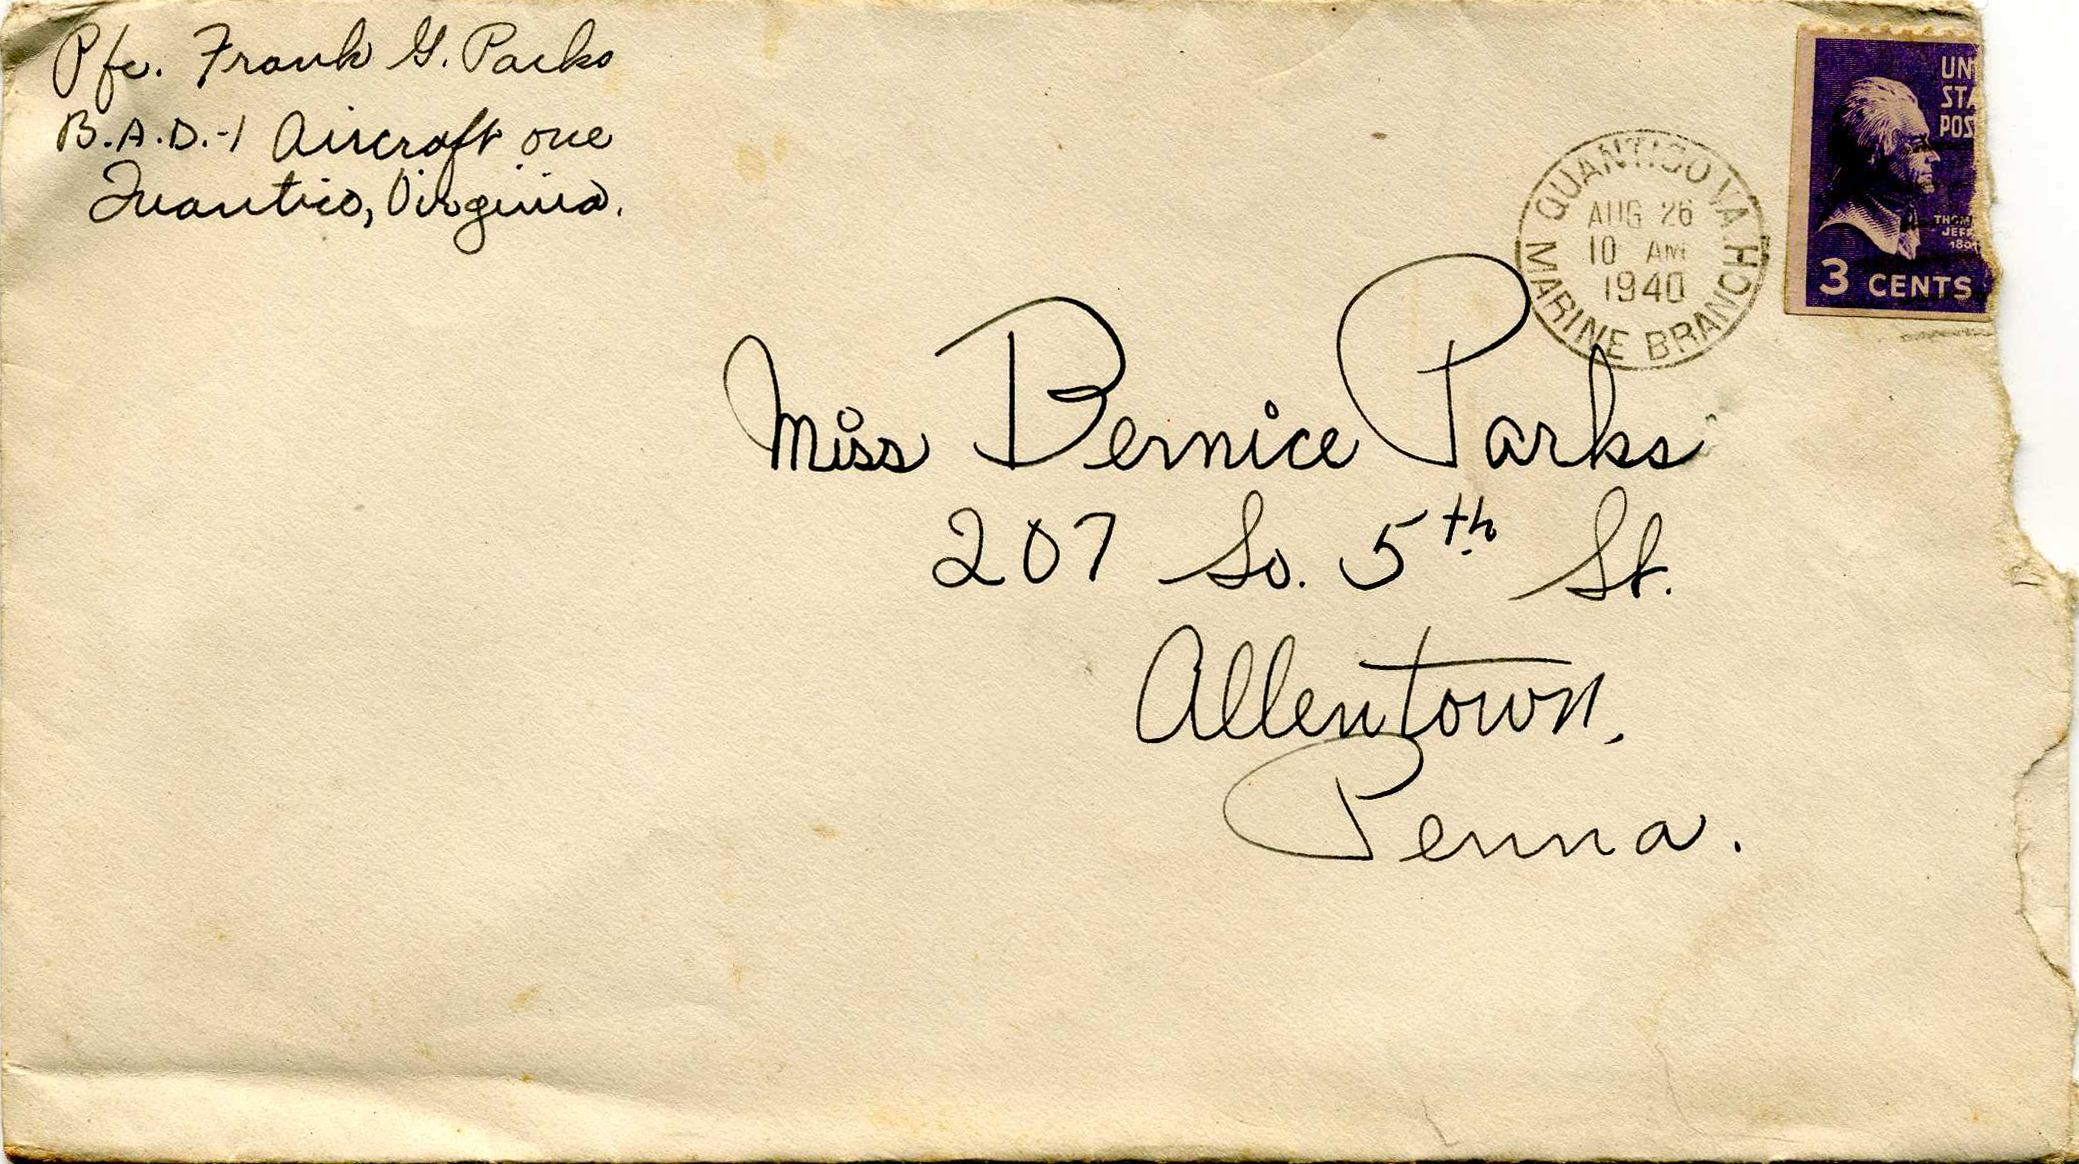 Pfc. Frank G. Parks
B.A.D.-1 Aircraft one
Quantico, Virginia.
QUANTICO VA.
AUG 26
10 AM
1940
MARINE BRANCH
UN
STA
POS
THOM
JEFF
180
3 CENTS
Miss Bernice Parks
207 So. 5th St.
Allentown,
Penna.